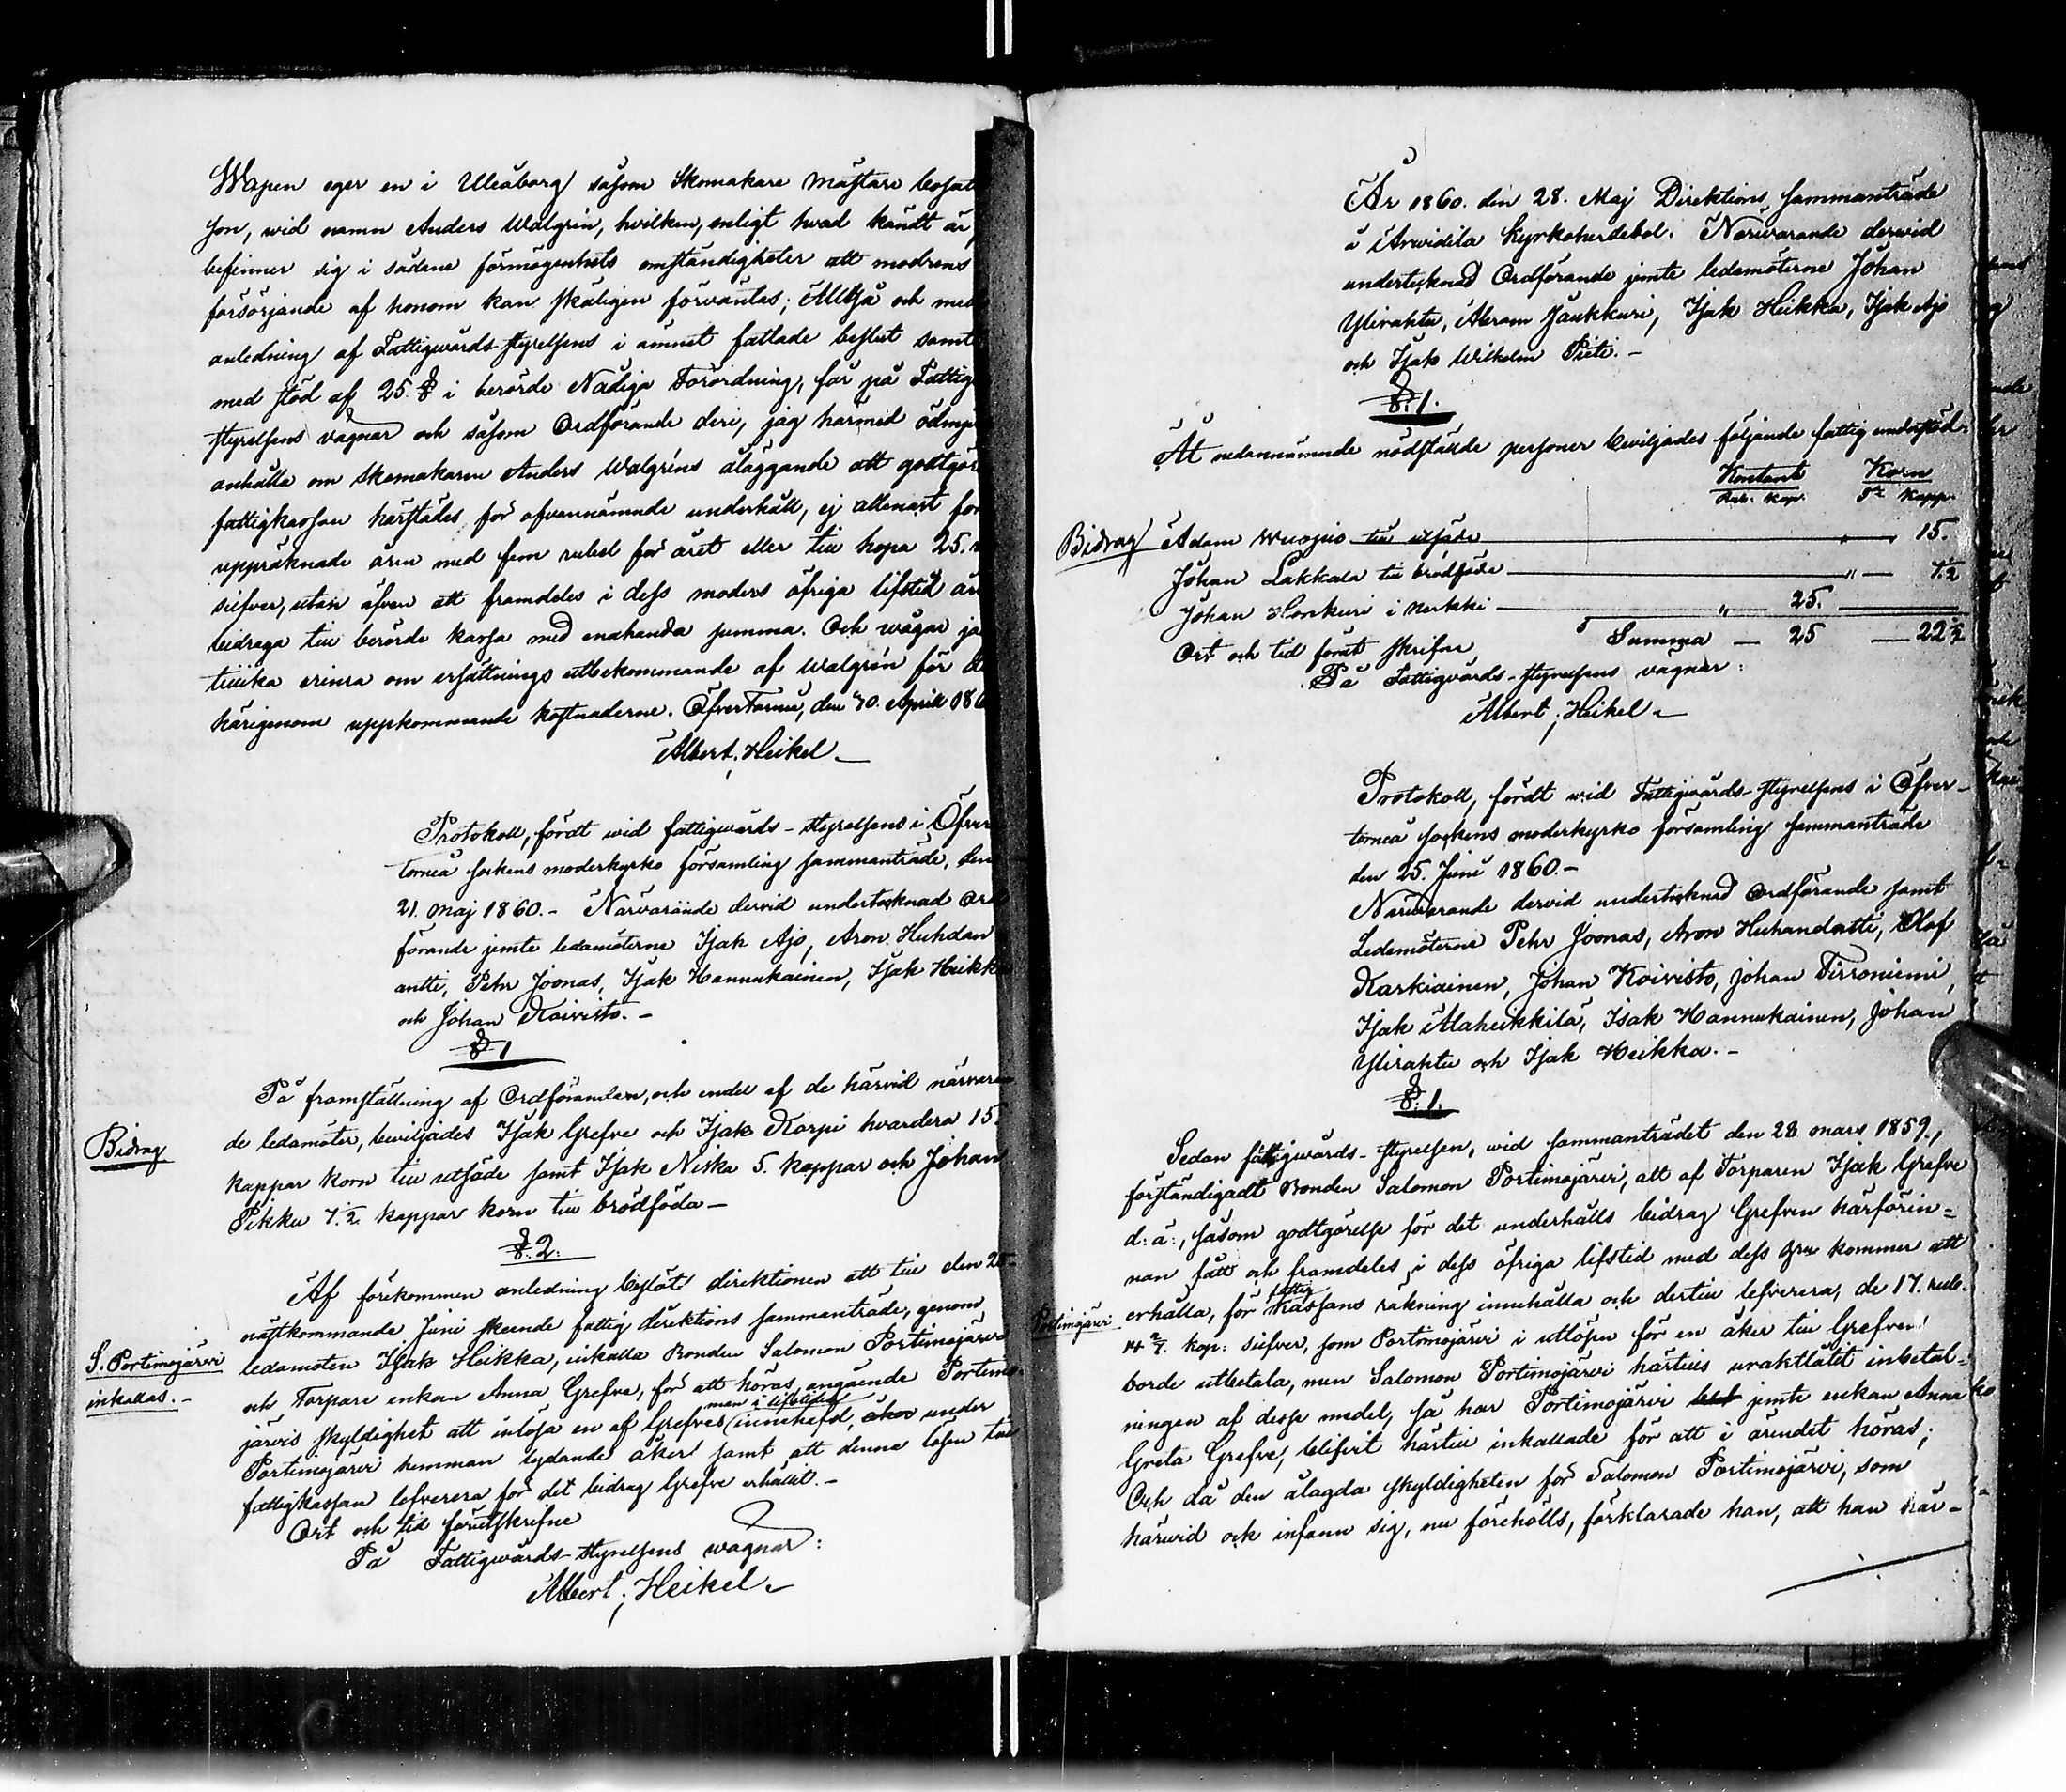 Wapen eger en i Uleåborg såsom Skomakare Mästare bosatt
son, wid namn Anders Walgrén, hvilken, enligt hvad kändt är,
befinner sig i sådane förmögenhets omständigheter att modrens
försörjande af honom kan skäligen förväntas; Alltså och med
anledning af Fattigwårds styrelsens i ämnet fattade beslut samt
med stöd af 25. § i berörde Nådiga Förordning, får på Fattig
styrelsens vägnar och såsom Ordförande deri, jag härmed ödmju
anhålla om skomakaren Anders Walgréns åläggande att godtgör
fattigkassan härstädes för ofvannämnde underhåll, ej allenast för
uppräknade åren med fem rubel för året eller till hopa 25.
silfver, utan äfven att framdeles i dess moders öfriga lifstid
bidraga till berörde kassa med enahanda summa. Och wågar ja
tillika erinra om ersättnings utbekommande af Walgrén för
härigenom uppkommande kostnaderne. Öfvertorneå, den 30. April 186
Albert Heikel
Protokoll, fördt wid fattigwårds-styrelsens i Öfver
torneå sockens moderkyrko församling sammanträde, den
21. Maj 1860. - Närvarande dervid undertecknad Ord
förande jemte ledamöterne Isak Ajo, Aron Huhdan
antti, Pehr Joonas, Isak Hannukainen, Isak Heikka
och Johan Koivisto. -
§ 1
På framställning af Ordföranden, och endel af de härvid närvaran
de ledamöter, beviljades Isak Grefve och Isak Karpi hvardera 15.
Bidrag
kappar korn till utsäde samt Isak Niska 5. kappar och Johan
Pikku 7.½ kappar korn till brödföda -
§. 2.
Af förekommen anledning beslöt direktionen att till den 25
nästkommande Juni skeende fattig direktions sammanträde, genom
S. Portimojärvi
inkallas. -
ledamoten Isak Heikka, inkalla Bonden Salomon Portimojärvi
och Torpare enkan Anna Grefve, för att höras angående Portimo
järvis skyldighet att inlösa en af Grefves innehafd, åker under
Portimojärvi hemman lydande åker samt att denna lösen till
fattigkassan lefverera för det bidrag Grefve erhållit. -
Ort och tid förutskrifne
På Fattigwårds-styrelsens wägnar:
Albert Heikel
År 1860. den 28. Maj Direktions sammanträde
å Arwidila Kyrkoherdebol. Närwarande derwid
undertecknad Ordförande jemte ledamöterne Johan
Ylirahtu, Abram Jaukkuri, Isak Heikka, Isak Ajo
och Isak Wilhelm Pieti. -
§. 1.
Åt nedannämnde nödstälde personer beviljades följande fattig understöd.
Kontant Korn
Rub. Kop. Tr Kapp.
Bidrag Adam Wuojio till utsäde " 15.
Johan Lakkala till brödföda " 7.½
Johan Honkuri i Kerkki " 25.
Ort och tid förut skrifne Summa 25 22½
På Fattigvårds-styrelsens vägnar:
Albert Heikel
Protokoll, fördt wid Fattigwårds-styrelsens i Öfver-
torneå sockens moderkyrko församling sammanträde
den 25. Juni 1860. -
Närwarande dervid undertecknad Ordförande samt
Ledamöterne Pehr Joonas, Aron Huhandatti, Olof
Karkiainen, Johan Koivisto, Johan Tirroniemi,
Isak Alaheikkilä, Isak Hannukainen, Johan
Ylirahtu och Isak Heikka. -
§: 1.
Sedan fattigwårds-styrelsen, wid sammanträdet den 28 mars 1859.,
förständigadt Bonden Salomon Portimojärvi, att af Torparen Isak Grefve
d: ä:, såsom godtgörelse för det underhålls bidrag Grefven härförin-
nan fått och framdeles i dess öfriga lifstid med dess kommer att
Portimojärvi
erhålla, för fattig kassans räkning innehålla och dertill lefverera, de 17. rub.
14 2/7. kop: silfver, som Portimojärvi i utlösen för en åker till Grefven
borde utbetala, men Salomon Portimojärvi härtills uraktlåtit inbetal-
ningen af desse medel, så har Portimojärvi jemte enkan Anna
Greta Grefve, blifvit härtill inkallade för att i ärendet höras;
Och då den ålagda skyldigheten för Salomon Portimojärvi, som
härwid ock infann sig, nu föreholls, förklarade han, att han här-